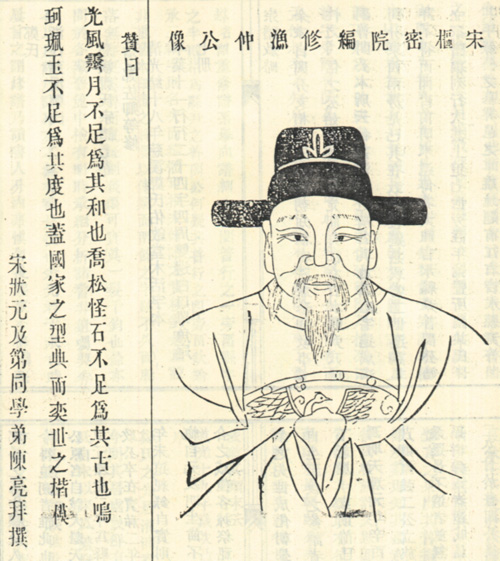 宋樞密院編修漁仲公像
贊曰
光風霽月不足爲其和也喬松怪石不足爲其古也嗚
珂珮玉不足爲其度也蓋國家之型典而奕世之楷模
宋狀元及第同學弟陳亮拜撰